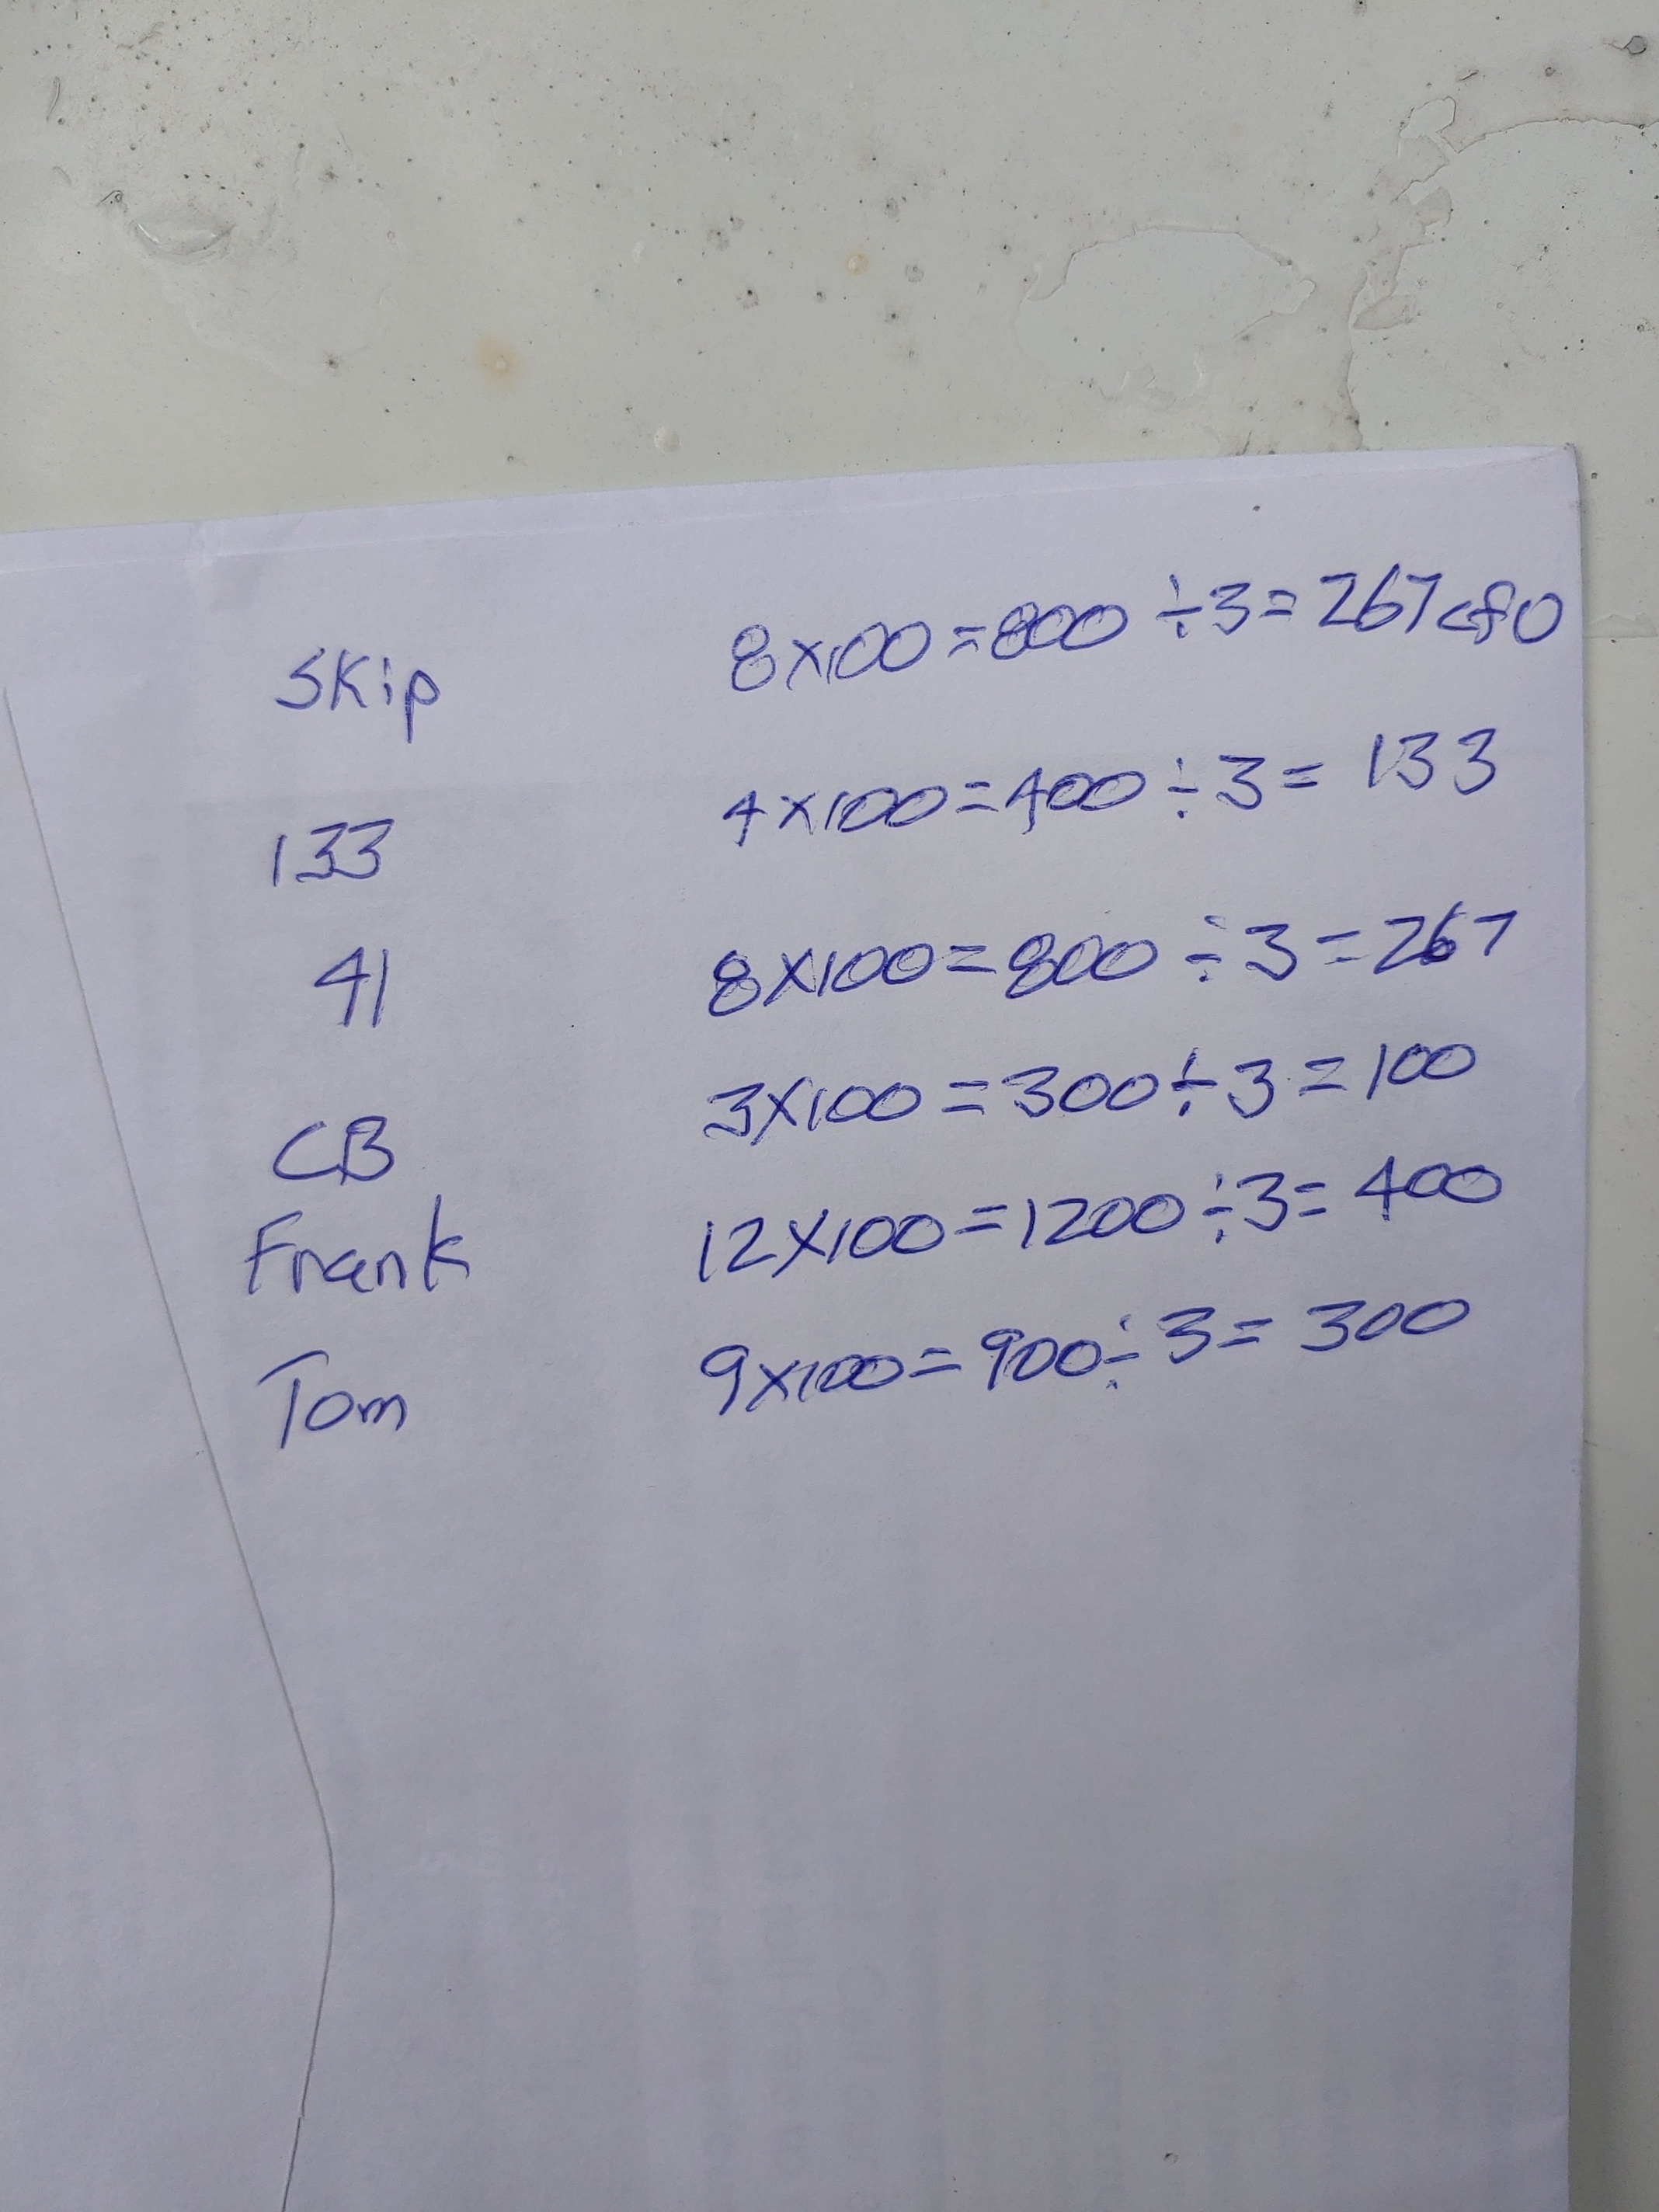 Skip 8x100=800 ÷3=267cfO
133 4x100=400÷3= 133
41 8x100=800 ÷3=267
CB 3x100=300÷3=100
Frank 12x100=1200÷3=400
Tom 9x100=900÷3=300